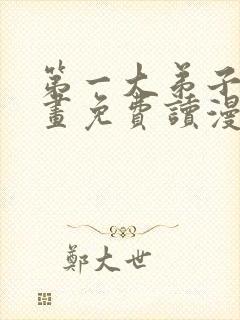 第一大弟子
畫免費讀漫
鄭大世